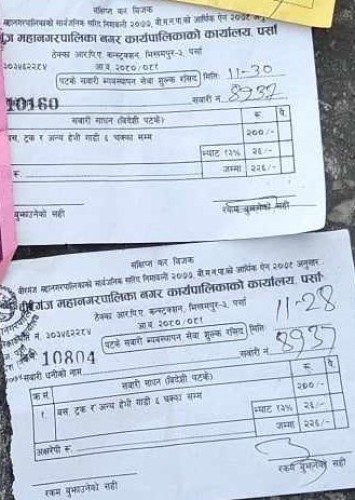 संक्षिप्त कर बिजक
महानगरपालिकाको सार्वजनिक खरिद नियमावली २०७७, बी.म.न.पा.को आर्थिक ऐन २०७९
महानगरपालिका नगर कार्यपालिकाको कार्यालय, पर्सा
ठेक्का आर.पि.ए. कन्स्ट्रक्सन, भिस्वमपुर-३, पर्सा
३०३४६२२८४ आ.व. २०८०/०८१
पटके सवारी ब्यवस्थापन सेवा शुल्क रसिद मिति: 11-30
10160 सवारी नं. 8937
सवारी साधन (विदेशी पटके) रु. पै.
बस, ट्रक र अन्य हेभी गाडी ६ चक्का सम्म २००/-
भ्याट १३% २६/-
रु. जम्मा २२६/-
बुझाउनेको सही रकम बुझ्नेको सही
संक्षिप्त कर बिजक
बीरगंज महानगरपालिकाको सार्वजनिक खरिद नियमावली २०७७, बी.म.न.पा.को आर्थिक ऐन २०७९ अनुसार
बीरगंज महानगरपालिका नगर कार्यपालिकाको कार्यालय, पर्सा
ठेक्का आर.पि.ए. कन्स्ट्रक्सन, भिस्वमपुर-३, पर्सा
नं. ३०३४६२२८४ आ.व. २०८०/०८१
पटके सवारी ब्यवस्थापन सेवा शुल्क रसिद मिति: 11-28
10804 सवारी नं. 8937
सवारी धनीको नाम
क्र.सं. सवारी साधन (विदेशी पटके) रु. पै.
१. बस, ट्रक र अन्य हेभी गाडी ६ चक्का सम्म २००/-
भ्याट १३% २६/-
अक्षरेपी रु. जम्मा २२६/-
रकम बुझाउनेको सही रकम बुझ्नेको सही